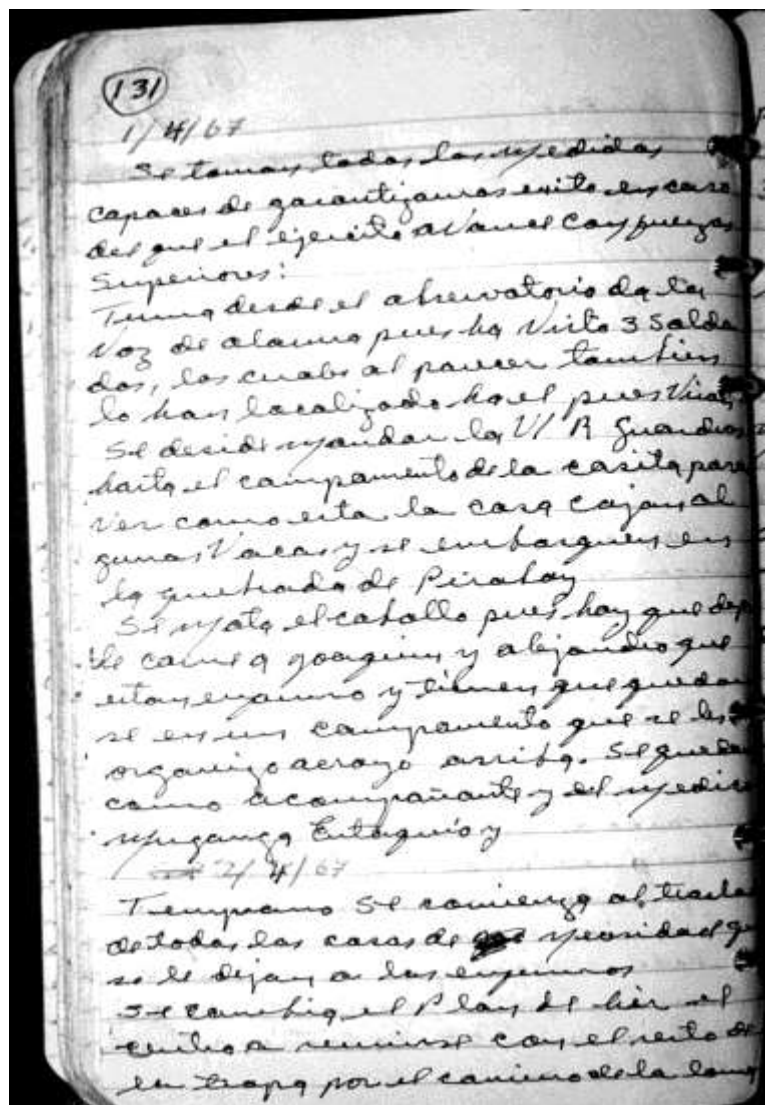 131
1/4/67
Se toman todas las medidas
capaces de garantizarnos exito en caso
del que el ejercito avance con fuerzas
Superiores:
Tuma desde el observatorio da la
Voz de alarma pues ha Visto 3 Solda
dos, los cuales al parecer tambien
lo han localizado ha el pues
Se deside mandar la V/ A
hasta el campamento de la casita para
Ver como esta la cosa cojan al
gunas Vacas y se embosquen en
la quebrada de Piraboy
Se mata el caballo pues hay que
le carne a Joaquin y alejandro que
estan enfermo y tienen que quedar
se en un campamento que se les
organizo arroyo arriba. Se quedan
como acompañante y el medico
Muganga Eutaquio y
2/4/67
Temprano Se comienza al
de todas las cosas de nesesidad
se le dejan a los enfermos
Se cambia el Plan de hir el
centro a reunirse con el resto de
la tropa por el camino de la loma